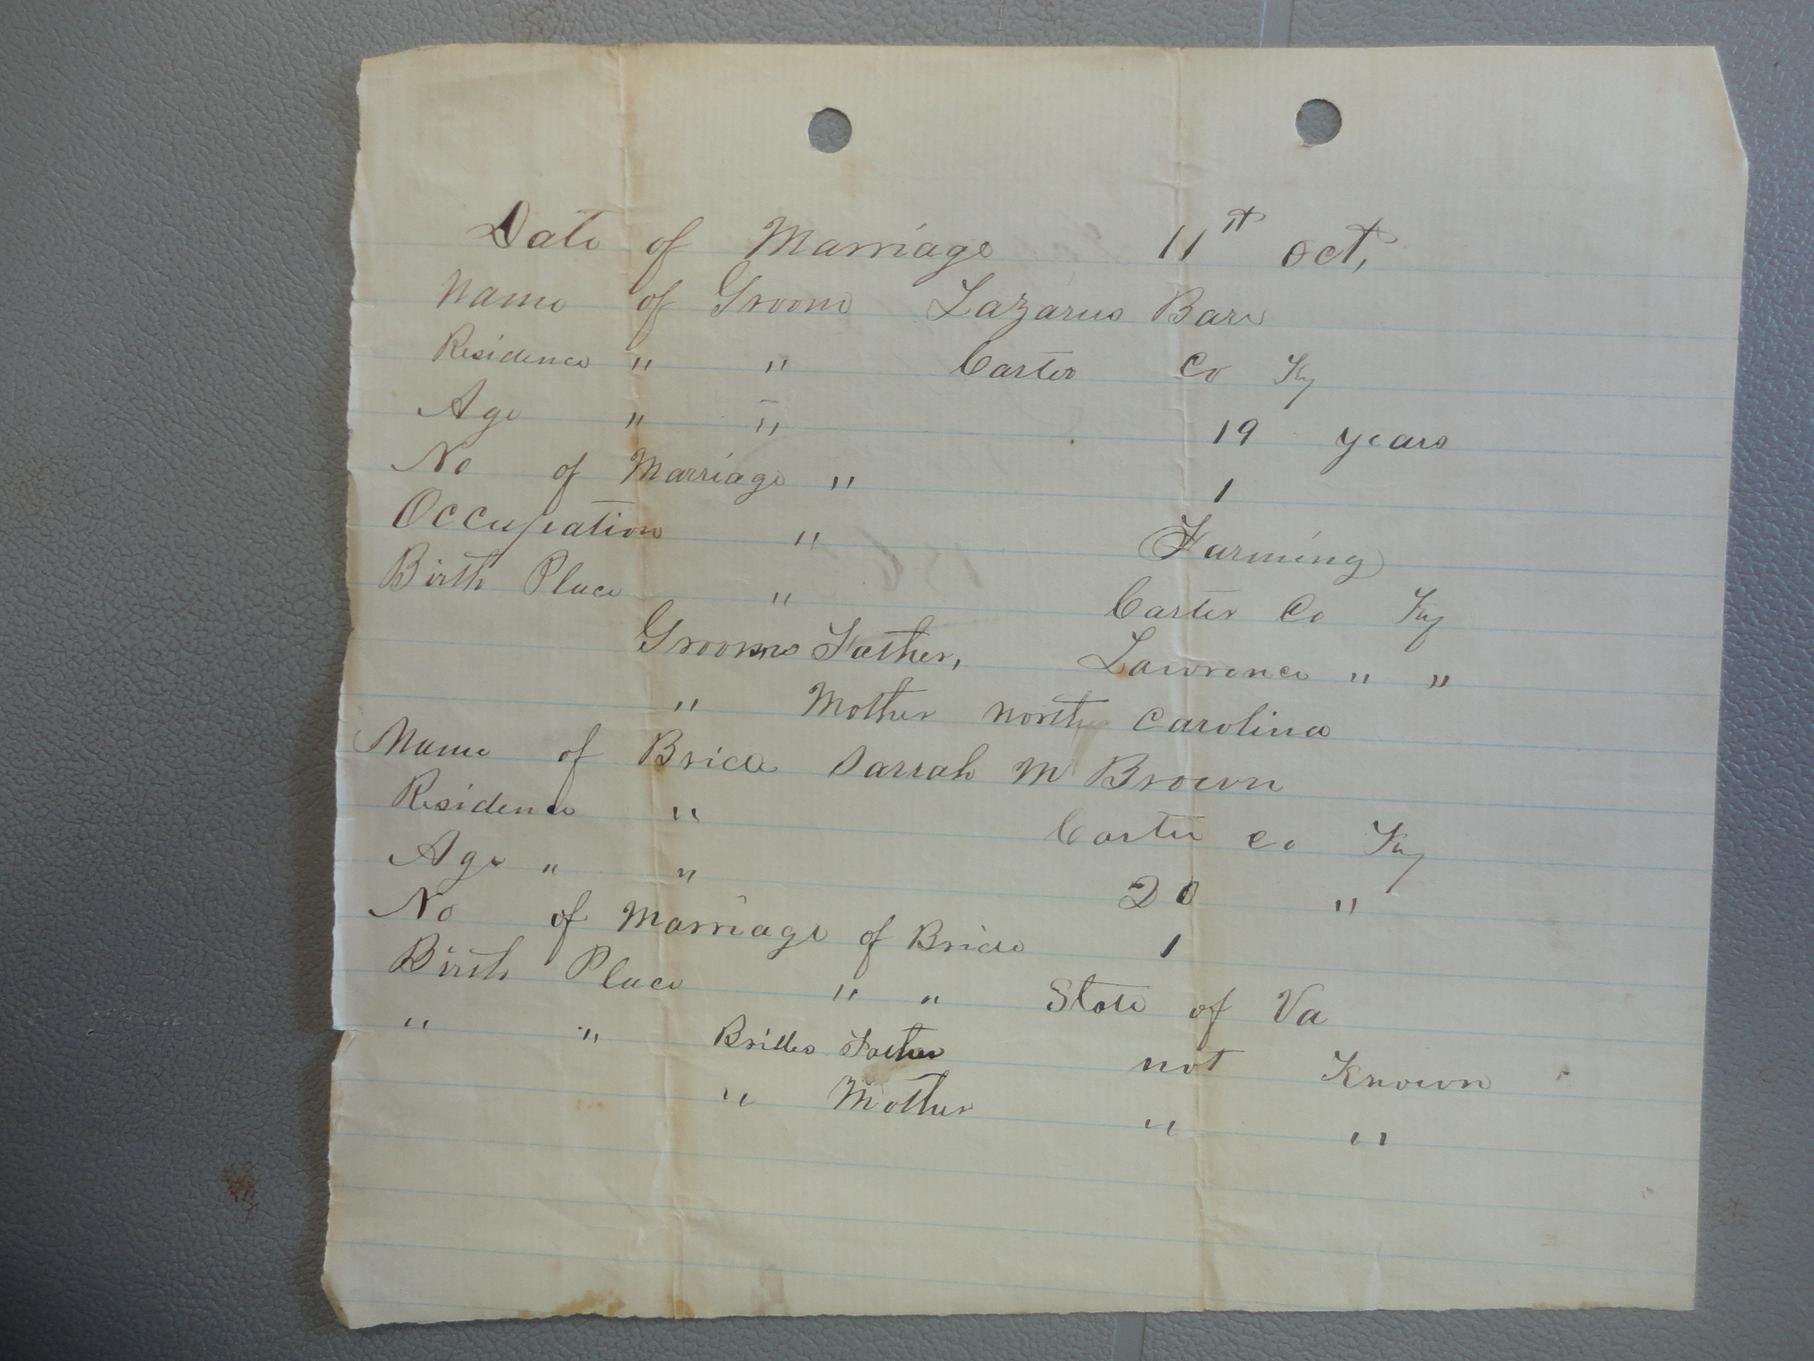 Date of Marriage 11th Oct,
Name of Groom Lazarus Barr
Residence " " Carter Co Ky
Age " " 19 years
No of Marriage " 1
Occupation " Farming
Birth Place " Carter Co Ky
Grooms Father, Lawrence " "
" Mother North Carolina
Name of Bride Sarrah M Brown
Residence " Carter Co Ky
Age " " 20 "
No of Marriage of Bride 1
Birth Place " " State of Va
" " Brides Father not Known
" Mother " "